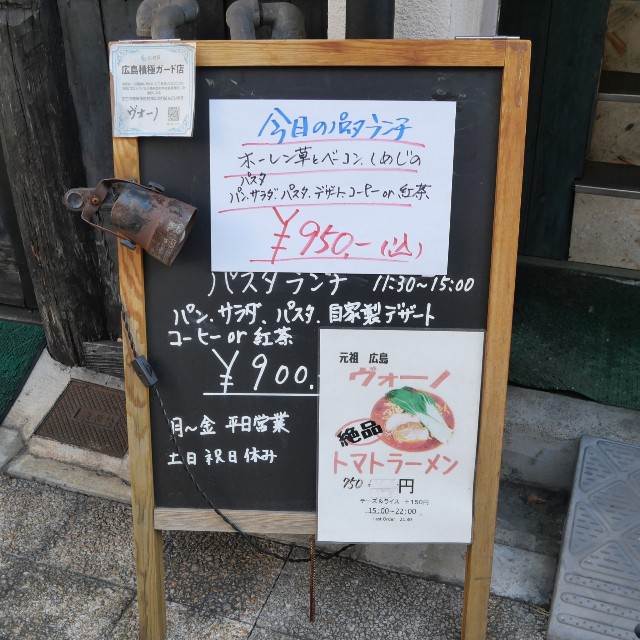 広島積極ガード店
ヴォーノ
今日のパスタランチ
ホーレン草とベーコン、しめじの
パスタ
パン、サラダ、パスタ、デザート、コーヒー or 紅茶
¥950.-(込)
パスタランチ 11:30~15:00
パン、サラダ、パスタ、自家製デザート
コーヒー or 紅茶
¥900.
月~金 平日営業
土日祝日休み
元祖 広島
ヴォーノ
絶品
トマトラーメン
950 円
チーズ&ライス +150円
15:00~22:00
Last Order 21:30